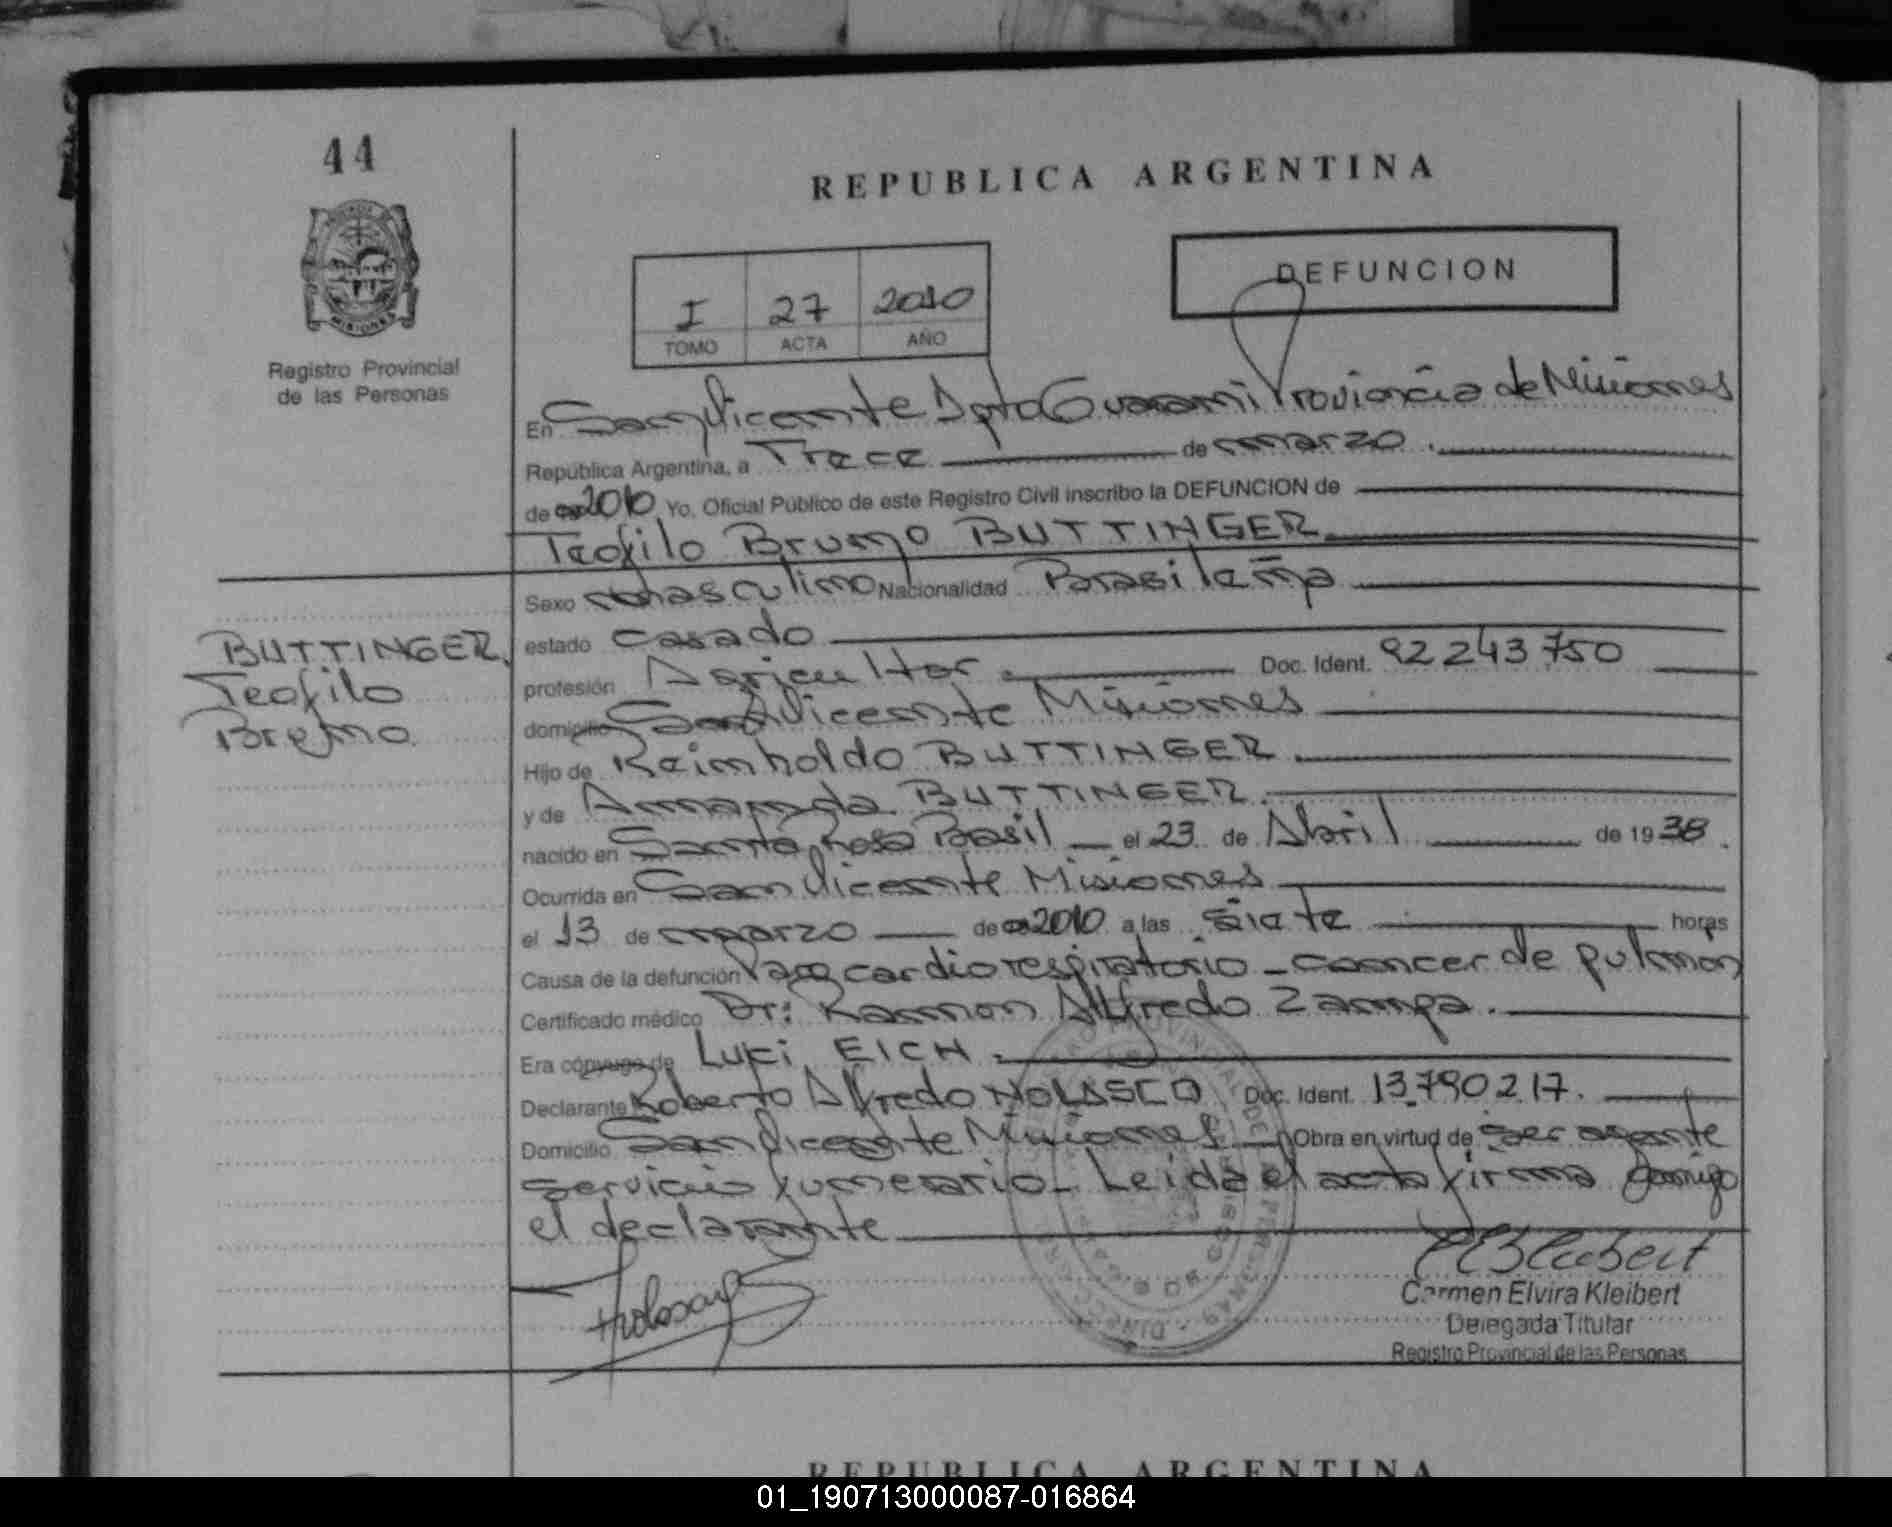 44
REPUBLICA ARGENTINA
MISIONES
Registro Provincial
de las Personas
I 27 2010
TOMO ACTA AÑO
DEFUNCION
En San Vicente Dpto Guarani Provincia de Misiones
República Argentina, a Trece de marzo.
de 2010 Yo, Oficial Público de este Registro Civil inscribo la DEFUNCION de
Teofilo Bruno BUTTINGER
Sexo masculino Nacionalidad Brasileña
BUTTINGER,
Teofilo
Bruno
estado casado
profesión Agricultor. Doc. Ident. 92243750
domicilio San Vicente Misiones
Hijo de Reinholdo BUTTINGER.
y de Amanda BUTTINGER.
nacido en Santa Rosa Brasil el 23 de Abril de 1938.
Ocurrida en San Vicente Misiones
el 13 de marzo de 2010 a las siete horas
Causa de la defunción Paro cardiorespiratorio - cancer de pulmon
Certificado médico Dr: Ramon Alfredo Zampa.
Era cónyuge de EICH.
Declarante Roberto Alfredo NOLASCO Doc. Ident. 13.790217.
Domicilio San Vicente Misiones Obra en virtud de ser agente
servicio funerario. Leida el acta firma conmigo
el declarante
Carmen Elvira Kleibert
Delegada Titular
Registro Provincial de las Personas
REPUBLICA ARGENTINA
01_190713000087-016864